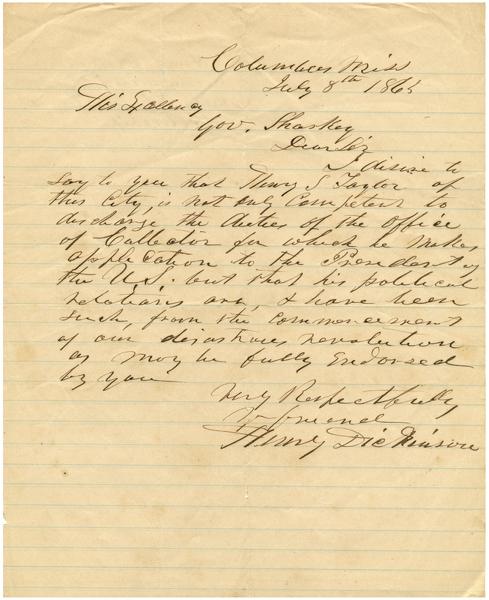 Columbus Miss
July 8th 1865
His Excellency
Gov. Sharkey
Dear Sir
I desire to
say to you that Henry S Taylor of
this City, is not only Competent to
discharge the duties of the Office
of Collector for which he makes
application to the President of
the U.S. but that his political
relations are, & have been
such, from the commencement
of our disastrous revolution
as may be fully Endorsed
by you
Very Respectfully
Yr friend
Henry Dickinson